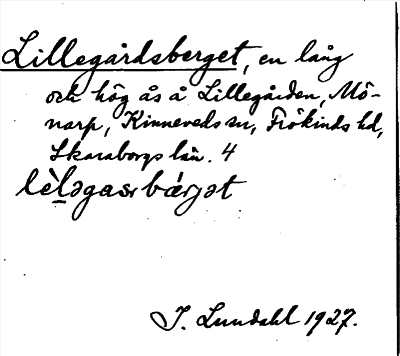 Lillegårdsberget, en lång
och hög ås å Lillegården, Mö-
narp, Kinneveds sn, Frökinds hd,
Skaraborgs län. 4
lèlǝgasr bárjǝt
I. Lundahl 1927.